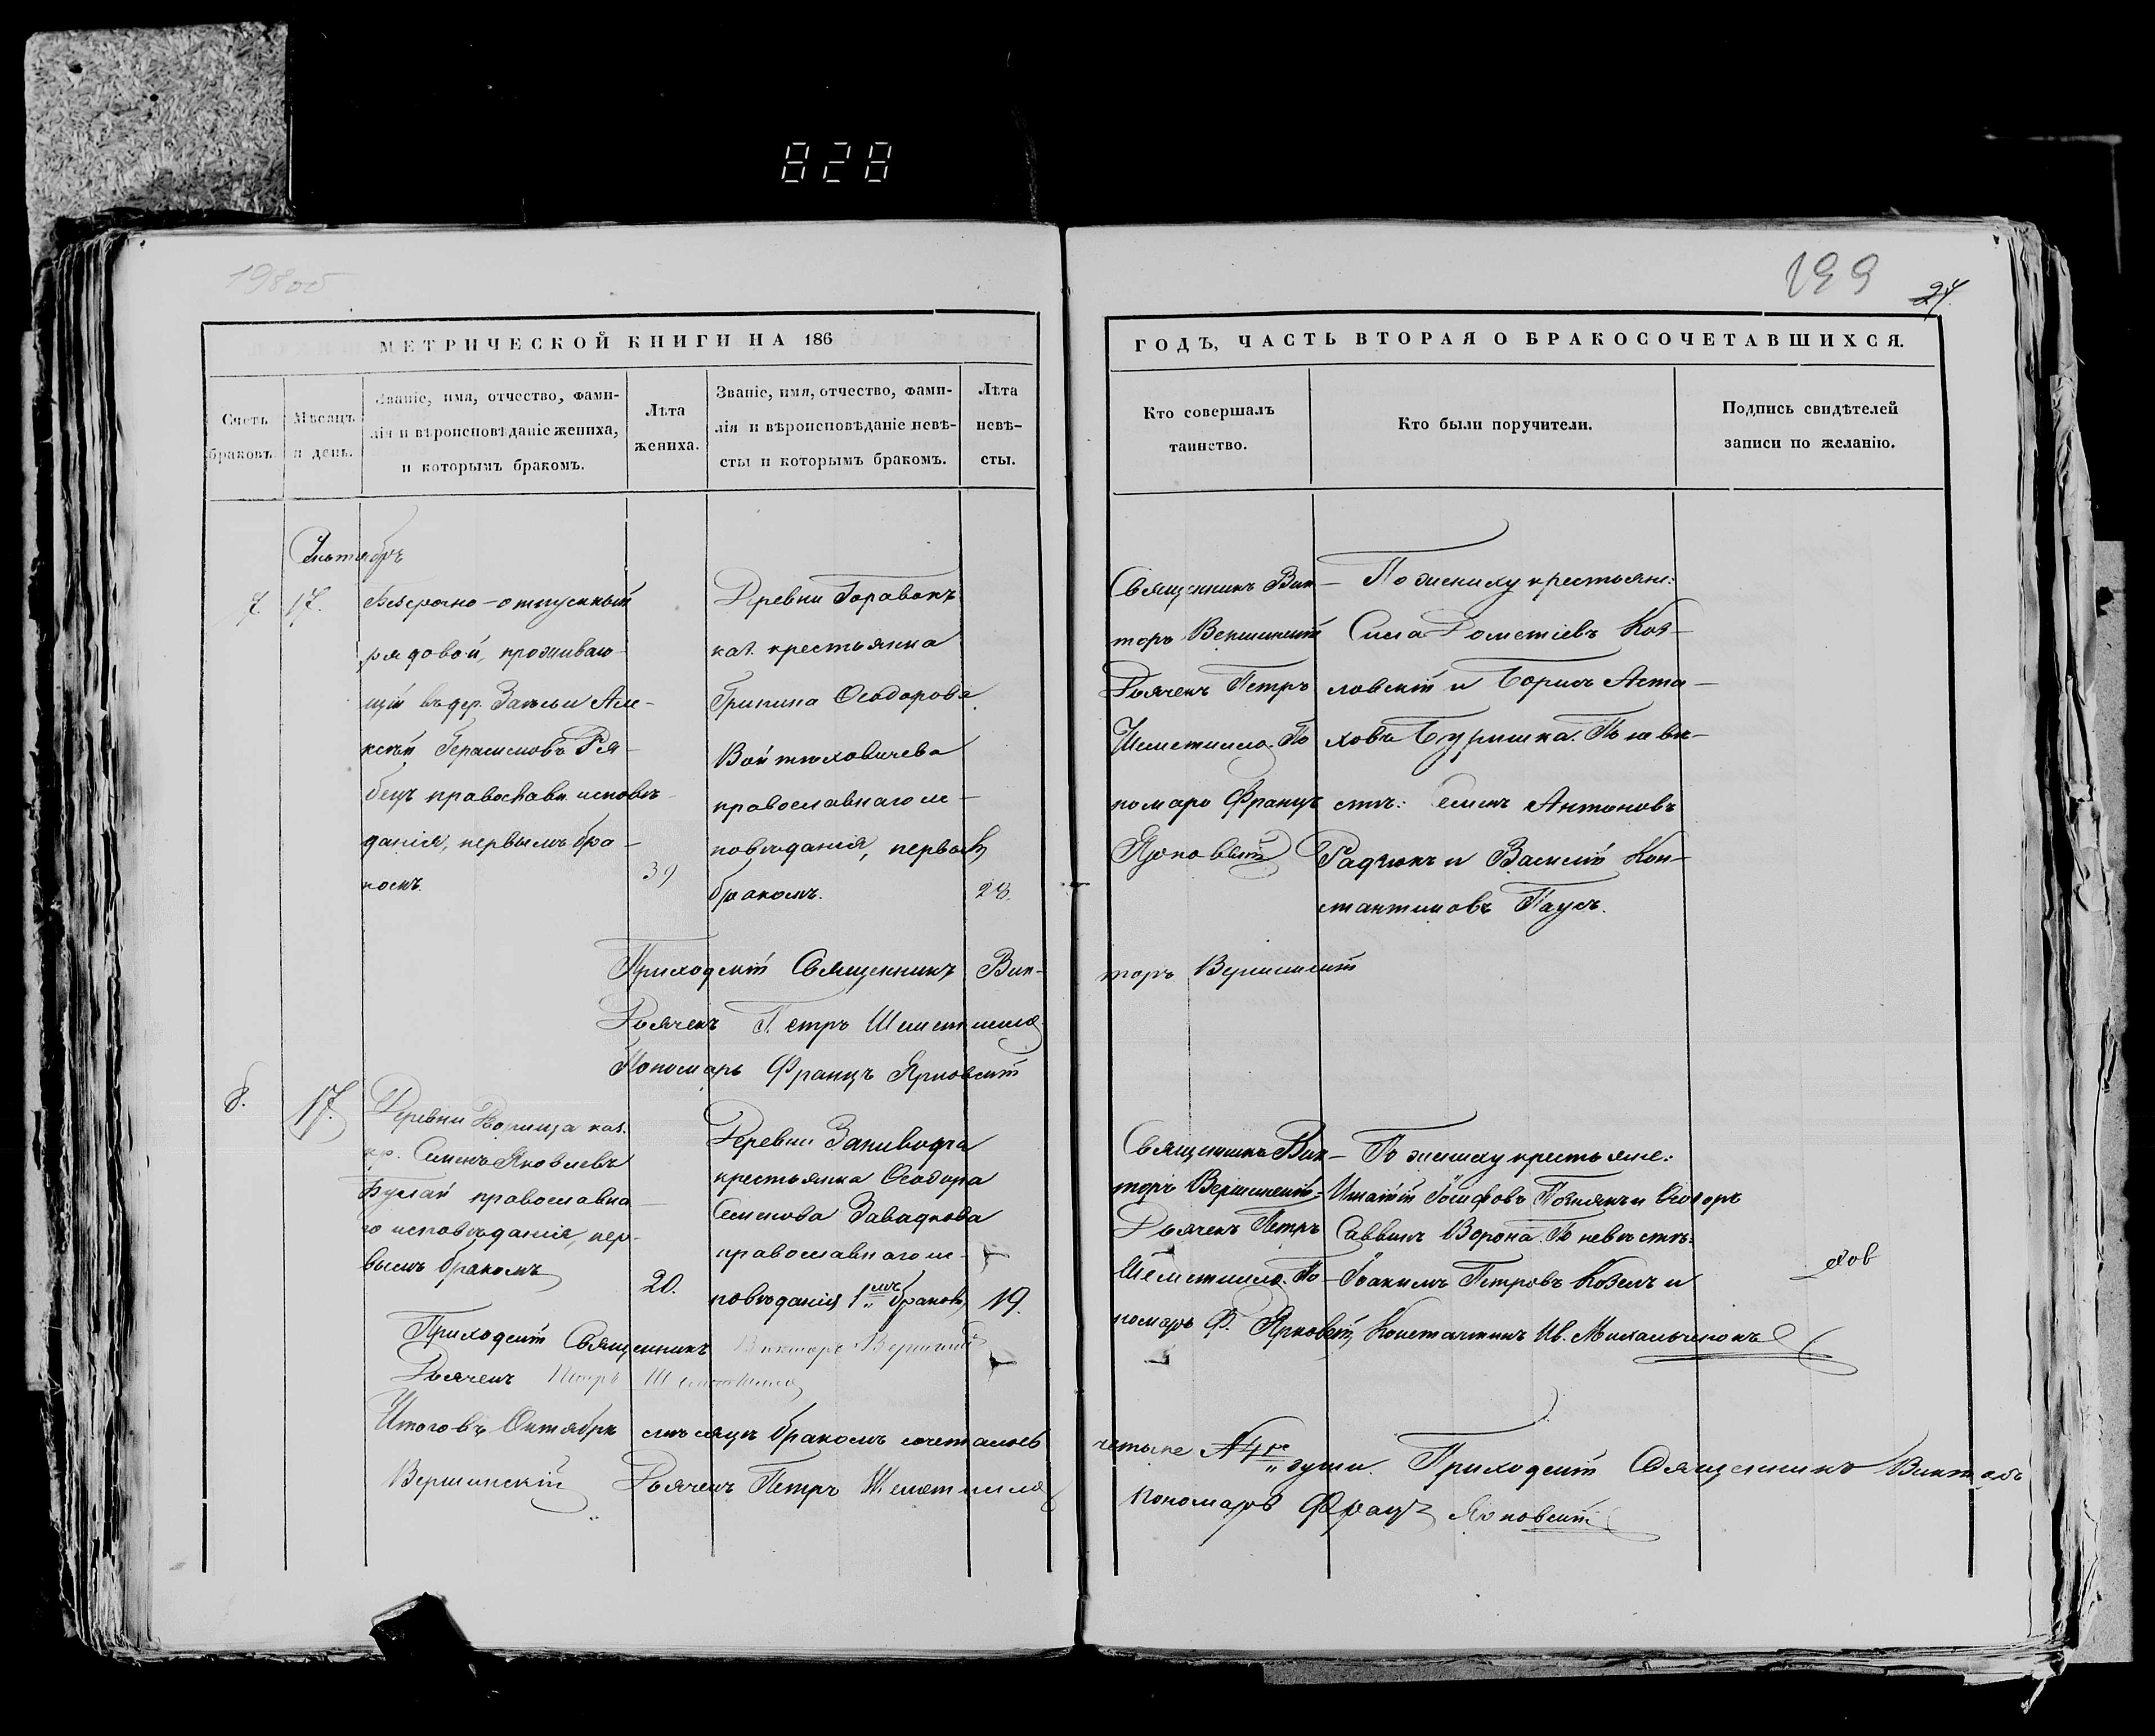 828
198 об
199
24.
МЕТРИЧЕСКОЙ КНИГИ НА 186
ГОДЪ, ЧАСТЬ ВТОРАЯ О БРАКОСОЧЕТАВШИХСЯ.
Счетъ
браковъ.
Мѣсяцъ
и день.
Званіе, имя, отчество, фами-
лія и вѣроисповѣданіе жениха,
и которымъ бракомъ.
Лѣта
жениха.
Званіе, имя, отчество, фами-
лія и вѣроисповѣданіе невѣ-
сты и которымъ бракомъ.
Лѣта
невѣ-
сты.
Кто совершалъ
таинство.
Кто были поручители.
Подпись свидѣтелей
записи по желанію.
7.
17.
Безсрочно-отпускный
рядовой, проживаю-
щій въ дер. Але-
ксѣй Герасимовъ Ря-
бецъ православн исповѣ-
данія, первымъ бра-
комъ.
39
Деревни
каз. крестьянка
Ѳеодорова
православнаго ис-
повѣданія, первы
бракомъ.
28.
Священникъ Вик-
торъ Вершинскій
Дьячекъ Петръ
Шеметилло. По
номарь Францъ
Ярковскій
По жениху крестьяне:
Сила Дометіевъ Коз-
ловскій и Борисъ Аста-
ховъ Буршка. По невѣ-
стѣ: Семенъ Антоновъ
Радчюкъ и Василій Кон-
стантиновъ Паусъ.
Приходскій Священникъ Вик-
торъ Вершинскій
Дьячекъ Петръ Шеметилло
Пономарь Францъ Ярковскій
8.
17.
Деревни каз.
кр. Семенъ Яковлевъ
православна
го исповѣданія, пер-
вымъ бракомъ
20.
Деревни
крестьянка Ѳеодора
Семенова Завадкова
православнаго ис-
повѣданія 1мъ бракомъ
19.
Священникъ Вик-
торъ Вершинскій
Дьячекъ Петръ
Шеметилло. По-
номарь Ф. Ярковскій
По жениху крестьяне:
Игнатій Іосифовъ Познякъ и Ѳеодоръ
Саввинъ Ворона. По невѣстѣ:
Іоакимъ Петровъ Козелъ и
Константинъ Ив. Михальченокъ
Приходскій Священникъ Викторъ Вершинскій
Дьячекъ Петръ Шеметилло
Итого въ Октябрѣ мѣсяцѣ бракомъ сочеталось
четыре №4ре души. Приходскій Священникъ Викторъ
Вершинскій Дьячекъ Петръ Шеметилло
Пономарь Францъ Ярковскій